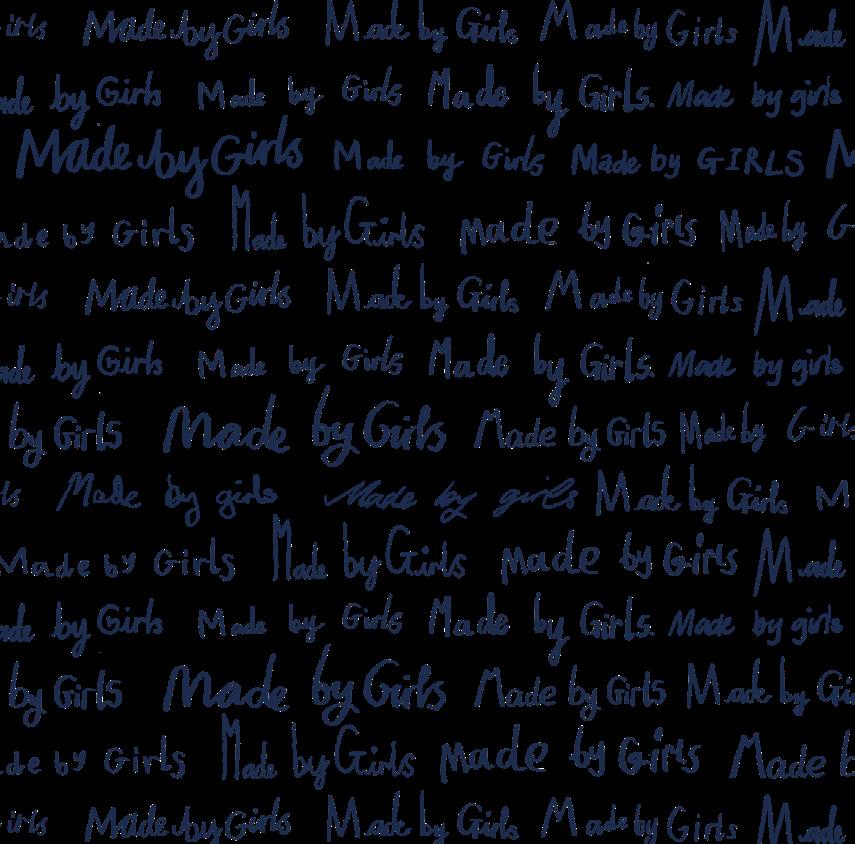 irls Made by Girls Made by Girls Made by Girls Made
ade by Girls Made by Girls Made by Girls. Made by girls
Made by Girls Made by Girls Made by GIRLS M
ade by Girls Made by Girls Made by Girls Made by G
irls Made by Girls Made by Girls Made by Girls Made
ade by Girls Made by Girls Made by Girls. Made by girls
by Girls Made by Girls Made by Girls Made by Girls
ls Made by girls Made by girls Made by Girls M
Made by Girls Made by Girls Made by Girls Made
ade by Girls Made by Girls Made by Girls. Made by girls
by Girls Made by Girls Made by Girls Made by Gi
de by Girls Made by Girls Made by Girls Made b
irls Made by Girls Made by Girls Made by Girls Made